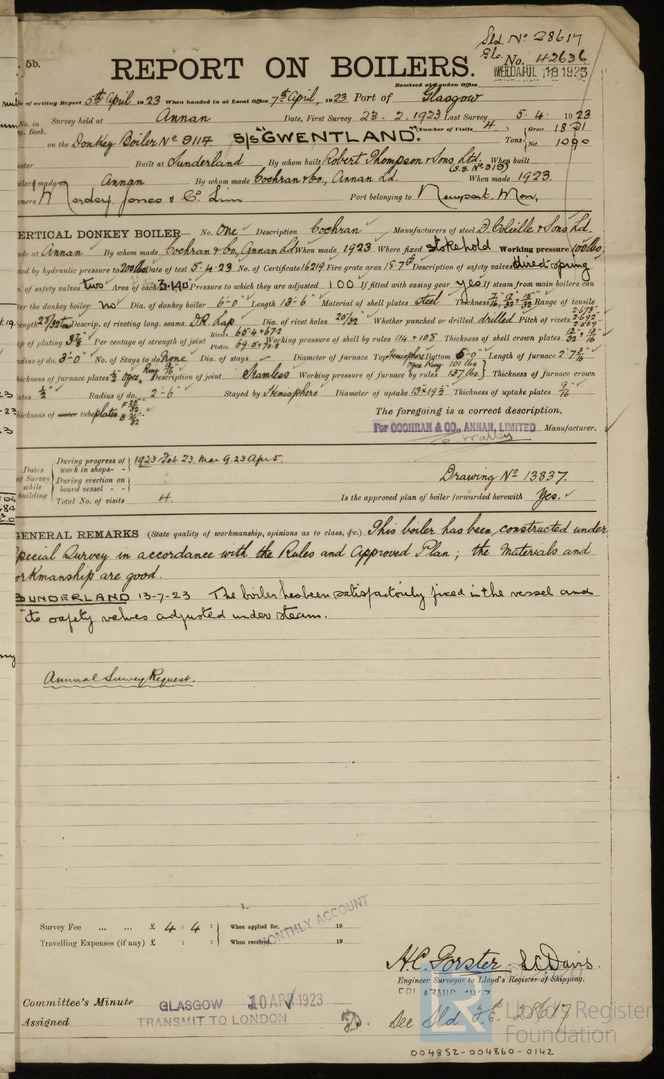 5b.
Sld. No 28617
Gls. No. 42636
REPORT ON BOILERS.
Received at London Office
WED. JUL 18 1923
of writing Report 5th April 1923 When handed in at Local Office 7th April, 1923 Port of Glasgow
No. in Survey held at Annan Date, First Survey 23.2.1923 Last Survey 5.4.1923
Book. (Number of Visits 4.) Gross 1821
on the Donkey Boiler No 9117 S/S "GWENTLAND." Tons Net 1090
Built at Sunderland By whom built Robert Thompson & Sons Ltd. (S.S. No 313) When built
made on Annan By whom made Cochran & Co, Annan Ld. When made 1923.
Mordey, Jones & Co. Lim Port belonging to Newport, Mon,
ERTICAL DONKEY BOILER No. One Description Cochran Manufacturers of steel D. Colville & Sons Ld.
at Annan By whom made Cochran & Co, Annan Ld When made 1923 Where fixed stokehold Working pressure 100 lbs.
by hydraulic pressure to 200 lbs Date of test 5.4.23 No. of Certificate 16219 Fire grate area 18.7 Description of safety valves direct spring
of safety valves two Area of each 3.140 Pressure to which they are adjusted 100 If fitted with easing gear yes If steam from main boilers can
the donkey boiler no Dia. of donkey boiler 6'-0" Length 13'-6" Material of shell plates Steel Thickness Range of tensile
Descrip. of riveting long. seams DR Lap Dia. of rivet holes 25/32" Whether punched or drilled drilled Pitch of rivets
of plating Per centage of strength of joint Rivets 65.4 Plates 69.5 Working pressure of shell by rules 114 & 105 Thickness of shell crown plates
dius of do. 3'-0" No. of Stays to do. None Dia. of stays Diameter of furnace Top Hemisphere Bottom 5'-0" Length of furnace
hickness of furnace plates Description of joint Seamless Working pressure of furnace by rules 137 lbs. Ogee Ring 101 lbs Thickness of furnace crown
ates 1/2" Radius of do. 2'-6" Stayed by Hemisphere Diameter of uptake 13" x 19 1/2" Thickness of uptake plates 9/16
ickness of water tubeplates
The foregoing is a correct description,
For COCHRAN & CO., ANNAN, LIMITED Manufacturer.
Dates of Survey while building
During progress of work in shops - - 1923 Feb 23. Mar 9. 23 Apr 5.
During erection on board vessel - -
Total No. of visits 4.
Drawing No 13837.
Is the approved plan of boiler forwarded herewith Yes.
GENERAL REMARKS (State quality of workmanship, opinions as to class, &c.) This boiler has been constructed under
Special Survey in accordance with the Rules and Approved Plan; the Materials and
orkmanship are good.
SUNDERLAND 13-7-23 The boiler has been satisfactorily fixed in the vessel and
its safety valves adjusted under steam.
Annual Survey Request.
Survey Fee ... ... £ 4 : 4 : When applied for, 19
MONTHLY ACCOUNT
Travelling Expenses (if any) £ : : When received, 19
A.C. Forster. S.C. Davis.
Engineer Surveyor to Lloyd's Register of Shipping.
Committee's Minute GLASGOW 10 APR 1923
Assigned TRANSMIT TO LONDON
See Sld 28617
LR
Lloyd's Register
Foundation
004852-004860-0142